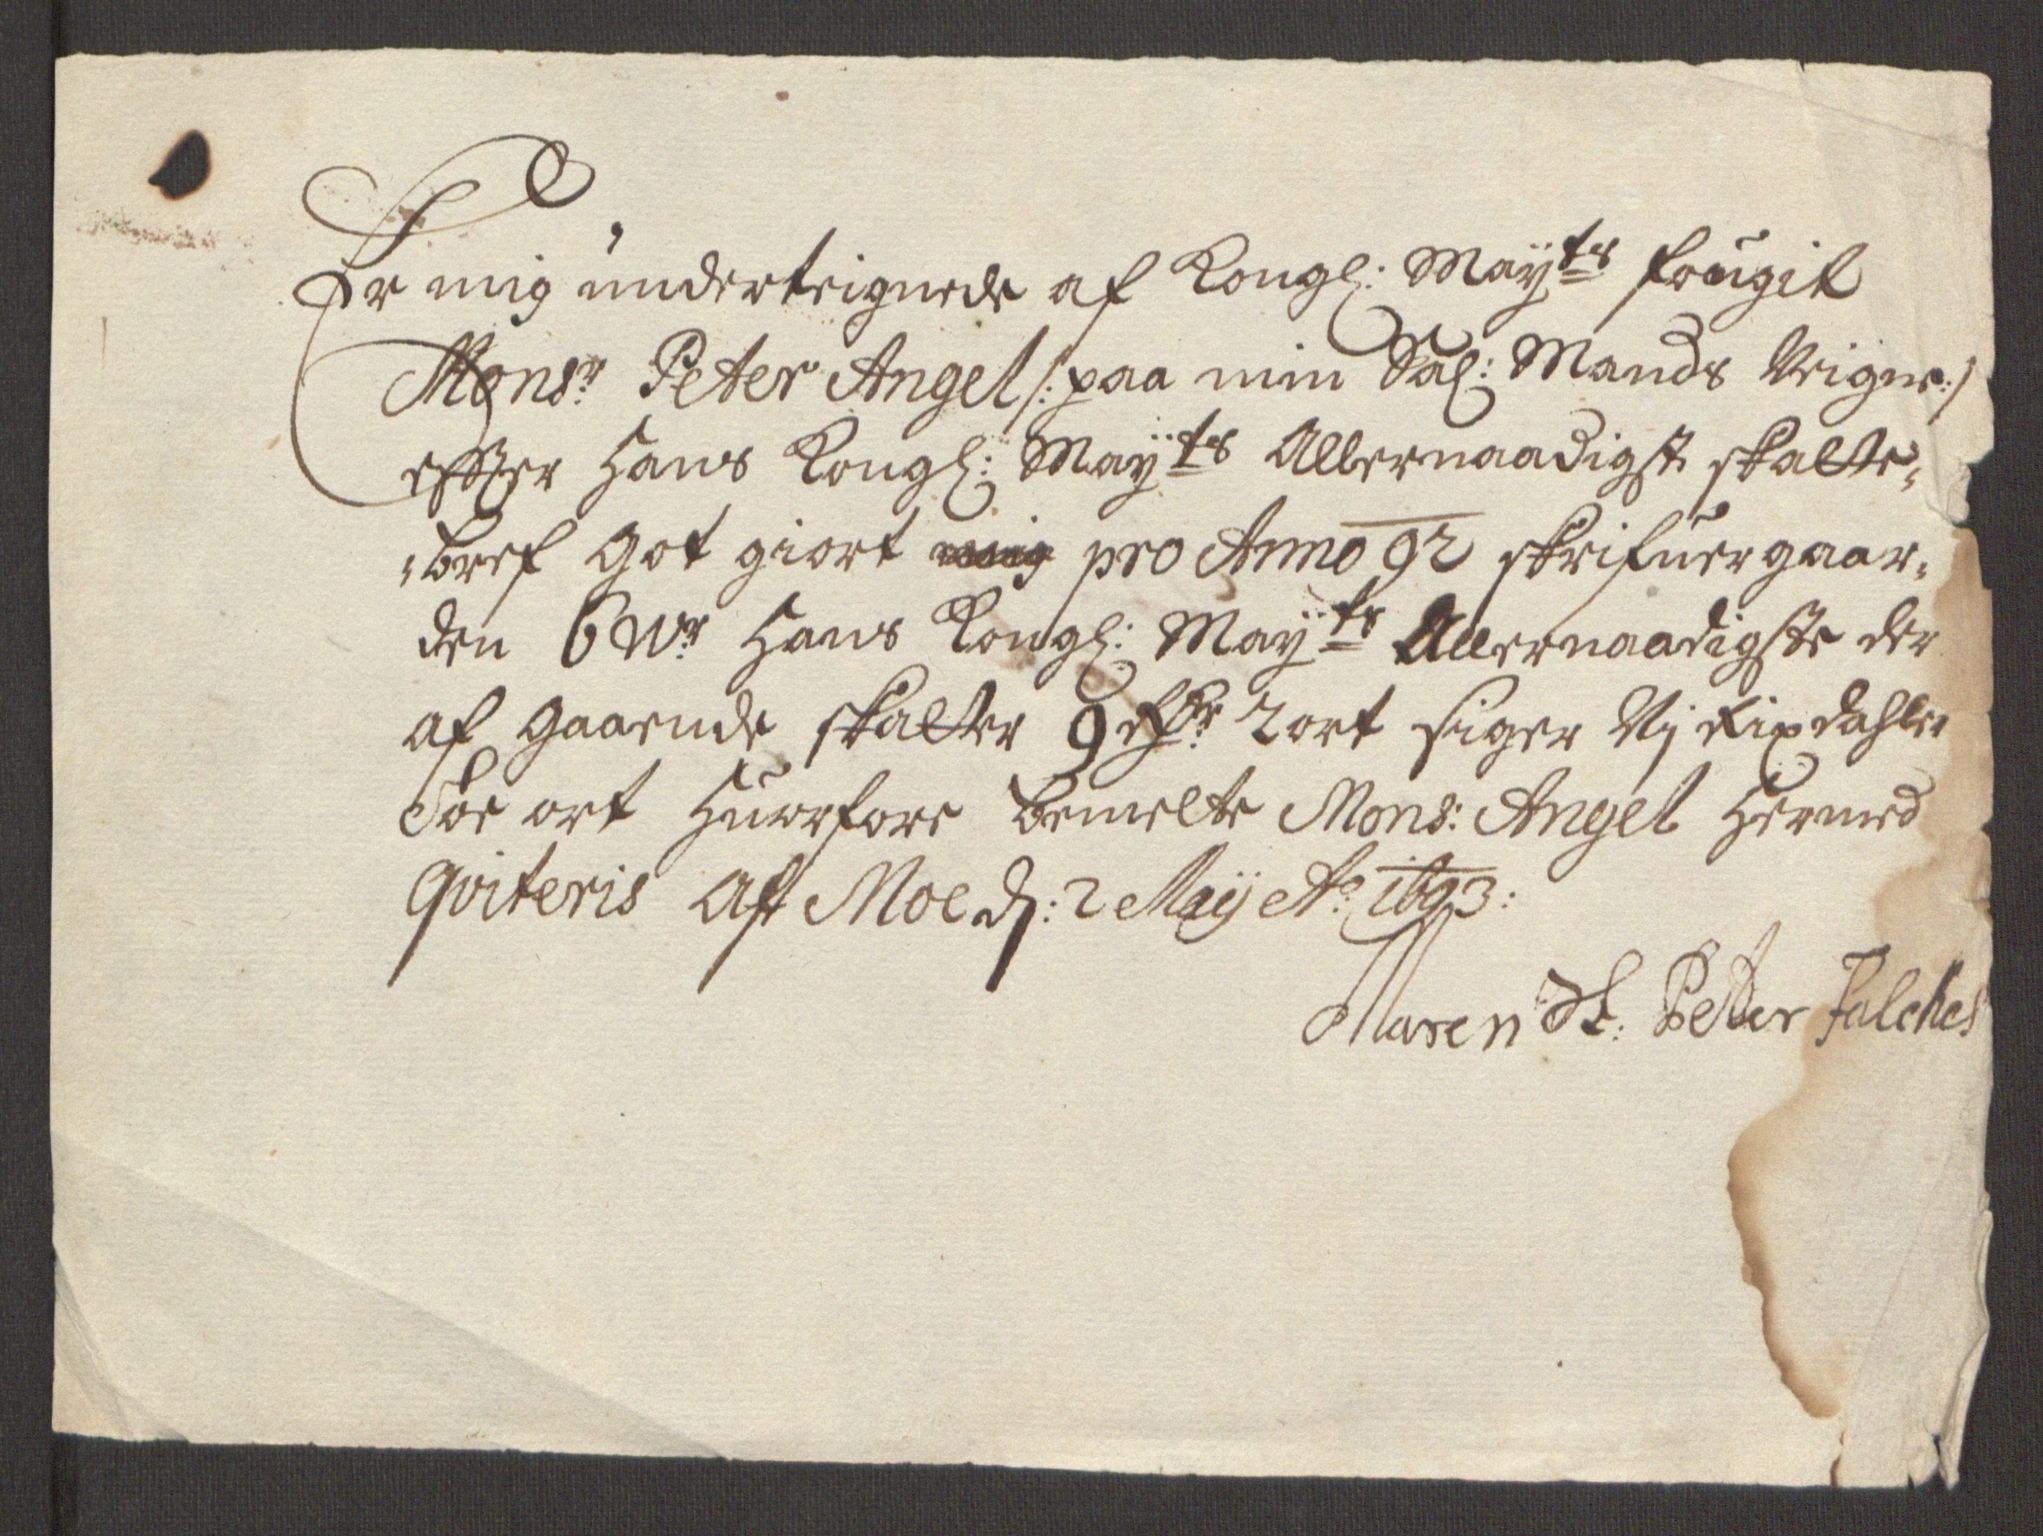 Er mig underteignede af Kongl: Mayts fougit
Monsr Peter Angel /: paa min Sal: Mands Veigne :/
effter Hans Kongl: Mayts Allernaadigst skatte-
-bref got giort pro Anno 92 skrifuergaar-
den Hans Kongl: Mayts Allernaadigste der
af gaaende skatter 9 Rdr 2 ort siger Nj Rixdahler
Toe ort Huorfore bemelte Mons: Angel Hermed
Qviteris Aft Moe d: 2 Maij Ao 1693:
Maren Sl: Peter Falches